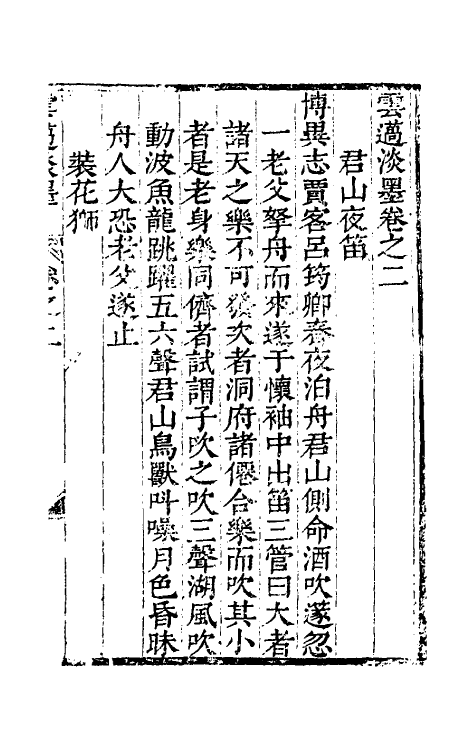 雲薖淡墨卷之二
君山夜笛
博異志賈客呂筠卿春夜泊舟君山側命酒吹篴忽
一老父拏舟而來遂于懷袖中出笛三管曰大者
諸天之樂不可發次者洞府諸僊合樂而吹其小
者是老身樂同儕者試謂子吹之吹三聲湖風吹
動波魚龍跳躍五六聲君山鳥獸叫噪月色昏昧
舟人大恐老父遂止
裝花獅
雲薖淡墨 卷之二